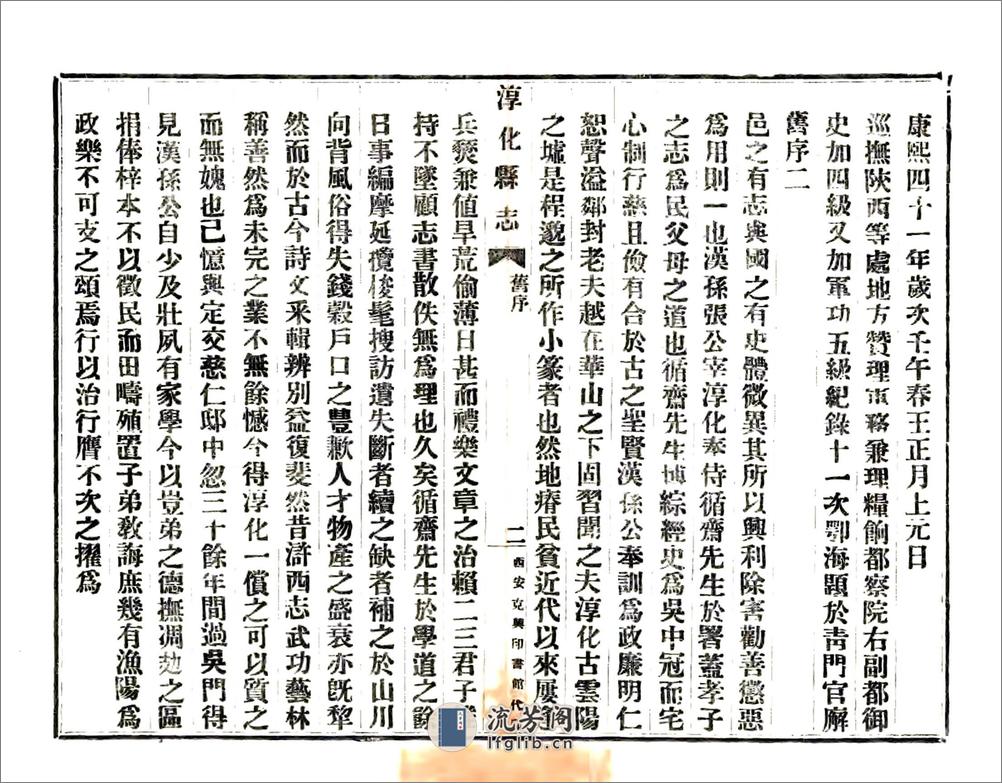 康熙四十一年歲次壬午春王正月上元日
巡撫陝西等處地方贊理軍務兼理糧餉都察院右副都御
史加四級又加軍功五級紀錄十一次鄂海題於青門官廨
舊序二
邑之有志與國之有史體微異其所以興利除害勸善懲惡
為用則一也漢孫張公宰淳化奉侍循齋先生於署蓋孝子
之志為民父母之道也循齋先生博綜經史為吳中冠而宅
心制行慈且儉有合於古之聖賢漢孫公奉訓為政廉明仁
恕聲溢鄰封老夫越在華山之下固習聞之夫淳化古雲陽
之墟是程邈之所作小篆者也然地瘠民貧近代以來屢
淳化縣志
舊序
二
西安克興印書館代
兵燹兼值旱荒偷薄日甚而禮樂文章之治賴二三君子
持不墜顧志書散佚無為理也久矣循齋先生於學道之餘
日事編摩延攬俊髦搜訪遺失斷者續之缺者補之於山川
向背風俗得失錢穀戶口之豐歉人才物產之盛衰亦既犂
然而於古今詩文釆輯辨別益復斐然昔滸西志武功藝林
稱善然為未完之業不無餘憾今得淳化一償之可以質之
而無媿也已憶與定交慈仁邸中忽三十餘年間過吳門得
見漢孫公自少及壯夙有家學今以豈弟之德撫凋攰之區
捐俸梓本不以徵民而田疇殖置子弟敎誨庶幾有漁陽為
政樂不可支之頌焉行以治行膺不次之擢為
流芳閣
lfglib.cn